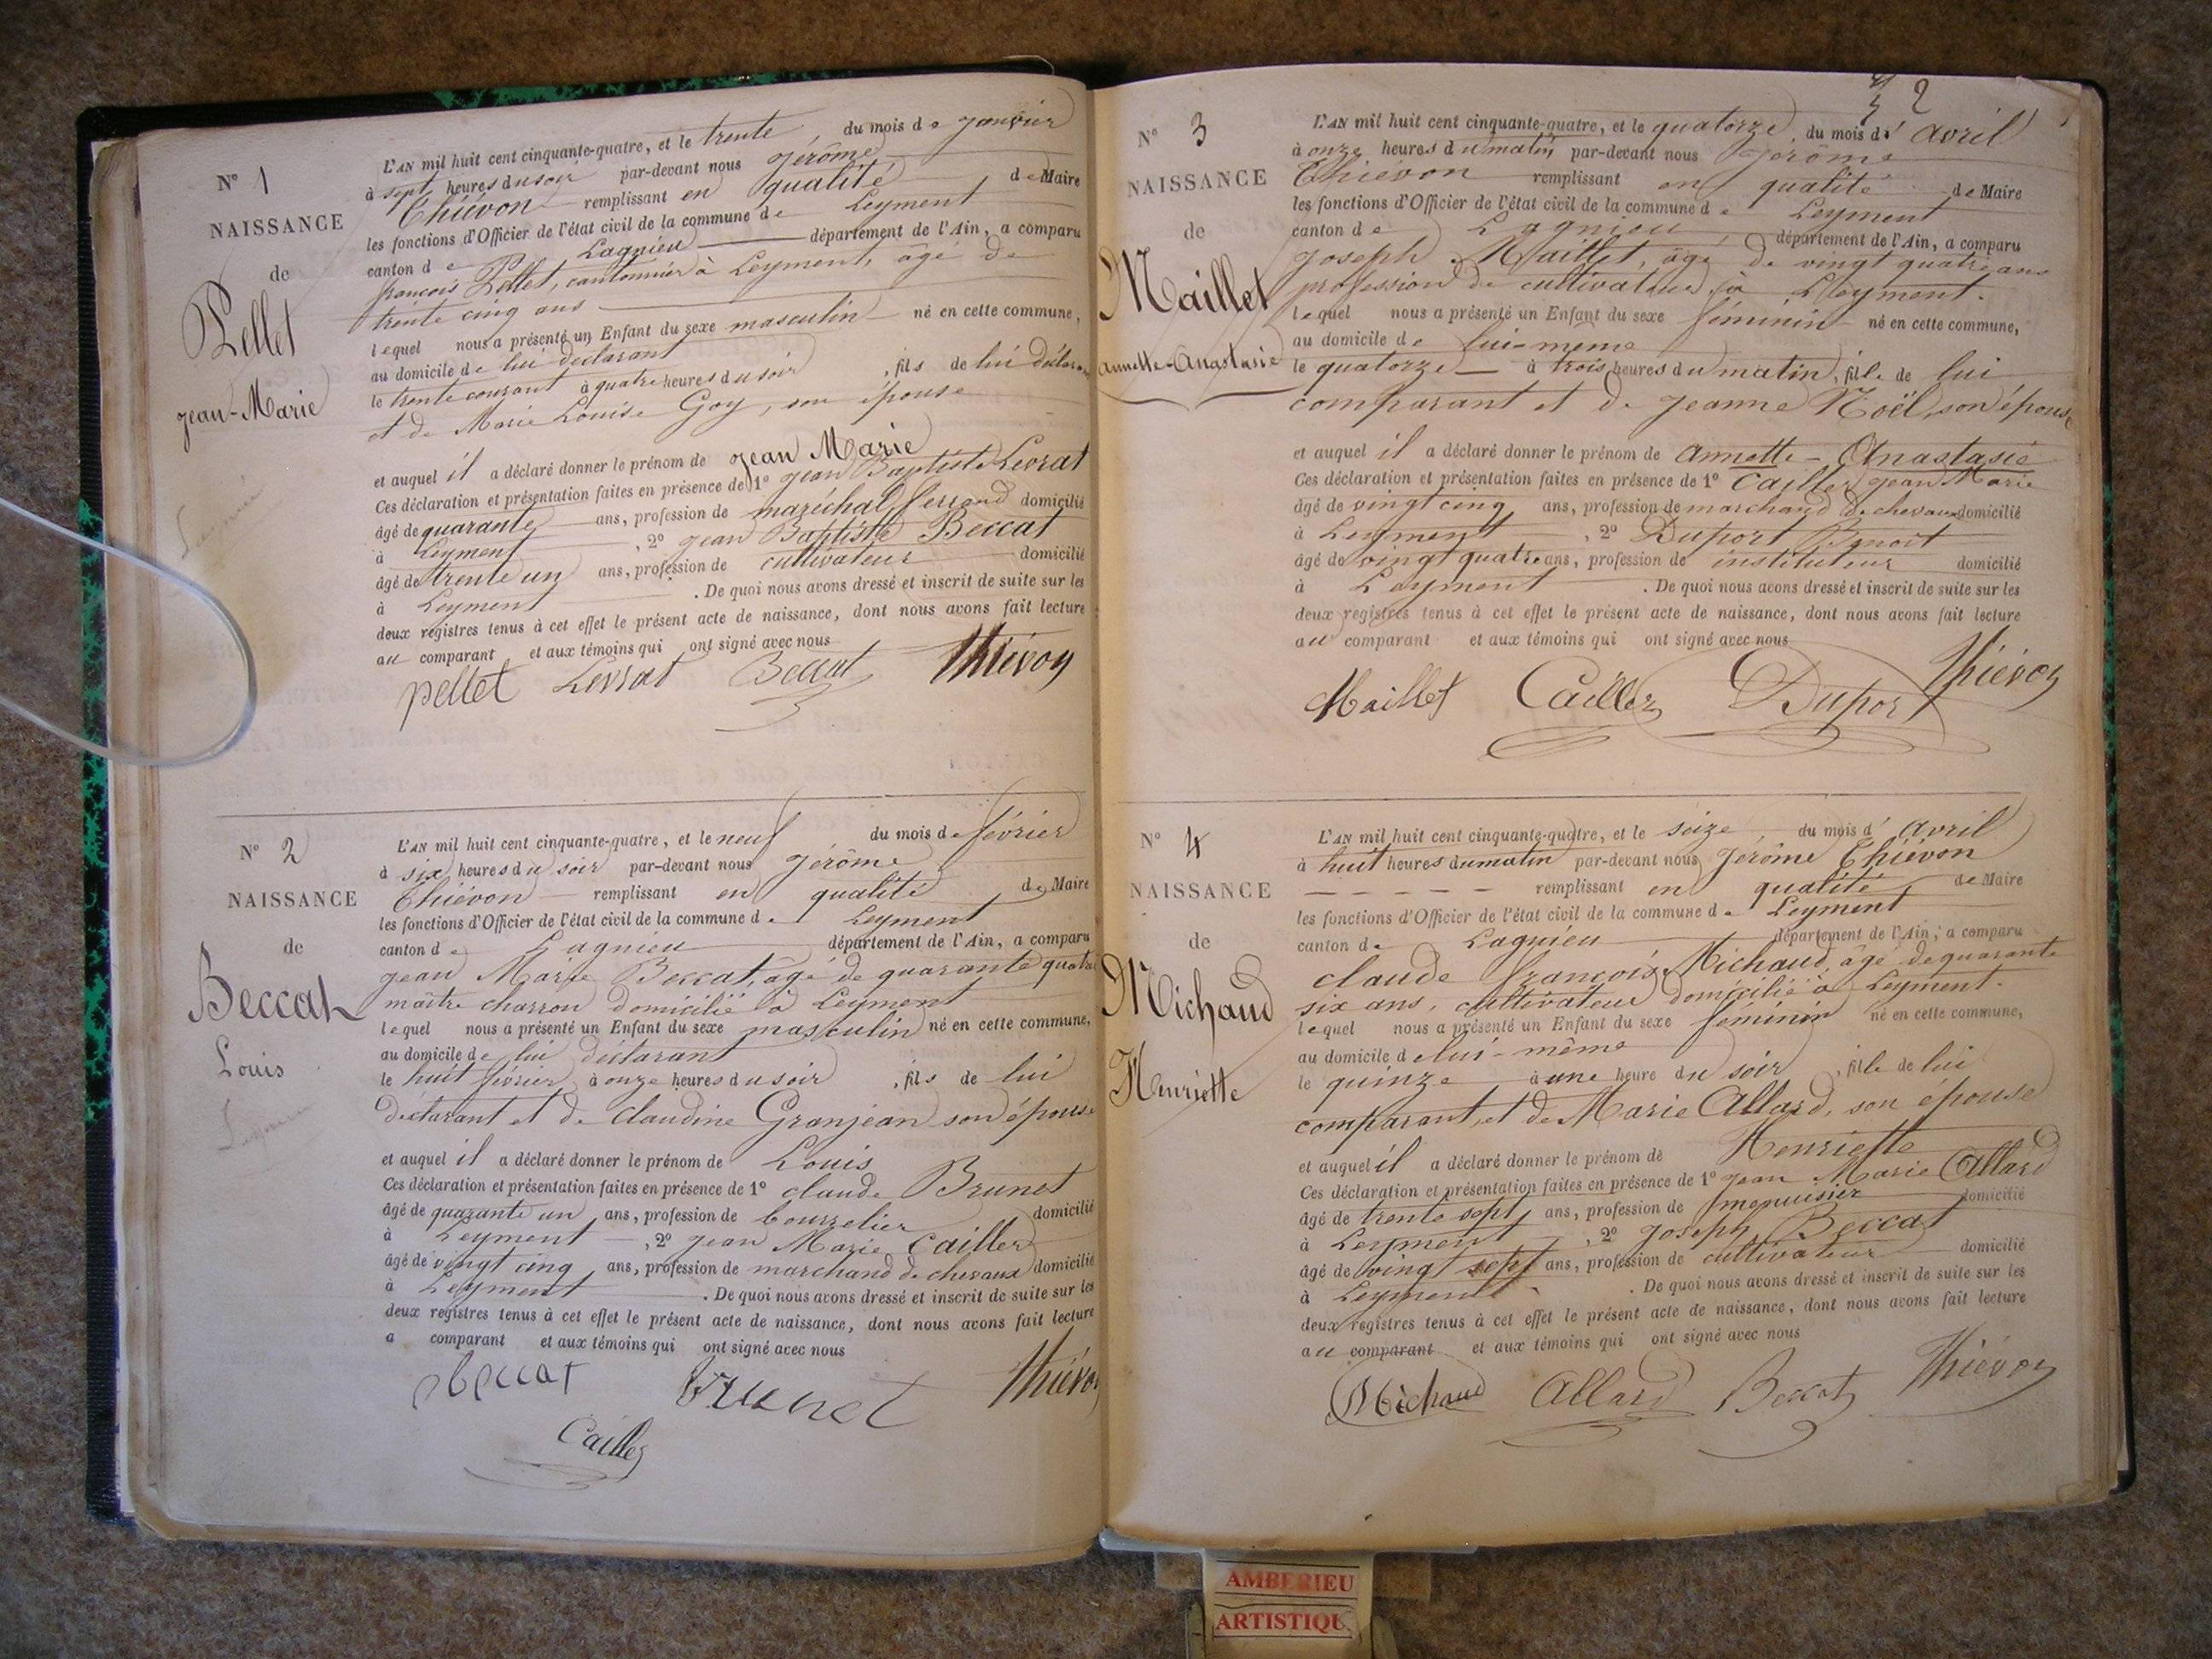 N° 1
NAISSANCE
de
Pellet
jean-Marie
L'AN mil huit cent cinquante-quatre, et le trente, du mois de janvier
à sept heures du soir par-devant nous jérôme
Thiévon remplissant en qualité de Maire
les fonctions d'Officier de l'état civil de la commune de Leyment
canton de Lagnieu département de l'Ain, a comparu
françois Pellet, cantonnier à Leyment, âgé de
trente cinq ans
lequel nous a présenté un Enfant du sexe masculin né en cette commune,
au domicile de lui déclarant
le trente courant à quatre heures du soir, fils de lui déclarant
et de Marie Louise Goy, son épouse
et auquel il a déclaré donner le prénom de jean Marie
Ces déclaration et présentation faites en présence de 1° jean Baptiste Levrat
âgé de quarante ans, profession de maréchal ferrand domicilié
à Leyment, 2° jean Baptiste Beccat
âgé de trente un ans, profession de cultivateur domicilié
à Leyment. De quoi nous avons dressé et inscrit de suite sur les
deux registres tenus à cet effet le présent acte de naissance, dont nous avons fait lecture
au comparant et aux témoins qui ont signé avec nous
pellet Levrat Beccat Thiévon
N° 2
NAISSANCE
de
Beccat
Louis
L'AN mil huit cent cinquante-quatre, et le neuf du mois de février
à six heures du soir par-devant nous jérôme
Thiévon remplissant en qualité de Maire
les fonctions d'Officier de l'état civil de la commune de Leyment
canton de Lagnieu département de l'Ain, a comparu
jean Marie Beccat, âgé de quarante quatre
maître charron domicilié à Leyment
lequel nous a présenté un Enfant du sexe masculin né en cette commune,
au domicile de lui déclarant
le huit février à onze heures du soir, fils de lui
déclarant et de claudine Granjean son épouse
et auquel il a déclaré donner le prénom de Louis
Ces déclaration et présentation faites en présence de 1° claude Brunet
âgé de quarante un ans, profession de bourrelier domicilié
à Leyment, 2° jean Marie Cailler
âgé de vingt cinq ans, profession de marchand de chevaux domicilié
à Leyment. De quoi nous avons dressé et inscrit de suite sur les
deux registres tenus à cet effet le présent acte de naissance, dont nous avons fait lecture
a comparant et aux témoins qui ont signé avec nous
Beccat Brunet Thiévon
Cailler
2
N° 3
NAISSANCE
de
Maillet
annette-Anastasie
L'AN mil huit cent cinquante-quatre, et le quatorze, du mois d'avril
à onze heures du matin par-devant nous jérôme
Thiévon remplissant en qualité de Maire
les fonctions d'Officier de l'état civil de la commune de Leyment
canton de Lagnieu, département de l'Ain, a comparu
joseph Maillet, âgé de vingt quatre ans
profession de cultivateur à Leyment.
lequel nous a présenté un Enfant du sexe féminin né en cette commune,
au domicile de lui-même
le quatorze à trois heures du matin, fille de lui
comparant et de jeanne Noël, son épouse
et auquel il a déclaré donner le prénom de annette-Anastasie
Ces déclaration et présentation faites en présence de 1° Cailler jean Marie
âgé de vingt cinq ans, profession de marchand de chevaux domicilié
à Leyment, 2° Duport Benoit
âgé de vingt quatre ans, profession de instituteur domicilié
à Leyment. De quoi nous avons dressé et inscrit de suite sur les
deux registres tenus à cet effet le présent acte de naissance, dont nous avons fait lecture
au comparant et aux témoins qui ont signé avec nous
Maillet Cailler Duport Thiévon
N° 4
NAISSANCE
de
Michaud
Henriette
L'AN mil huit cent cinquante-quatre, et le seize, du mois d'avril
à huit heures du matin par-devant nous jérôme Thiévon
remplissant en qualité de Maire
les fonctions d'Officier de l'état civil de la commune de Leyment
canton de Lagnieu département de l'Ain, a comparu
claude françois Michaud, âgé de quarante
six ans, cultivateur domicilié à Leyment.
lequel nous a présenté un Enfant du sexe féminin né en cette commune,
au domicile de lui-même
le quinze à une heure du soir, fille de lui
comparant, et de Marie Allard, son épouse
et auquel il a déclaré donner le prénom de Henriette
Ces déclaration et présentation faites en présence de 1° jean Marie Allard
âgé de trente sept ans, profession de menuisier domicilié
à Leyment, 2° joseph Beccat
âgé de vingt sept ans, profession de cultivateur domicilié
à Leyment. De quoi nous avons dressé et inscrit de suite sur les
deux registres tenus à cet effet le présent acte de naissance, dont nous avons fait lecture
au comparant et aux témoins qui ont signé avec nous
Michaud Allard Beccat Thiévon
AMBERIEU
ARTISTIQU